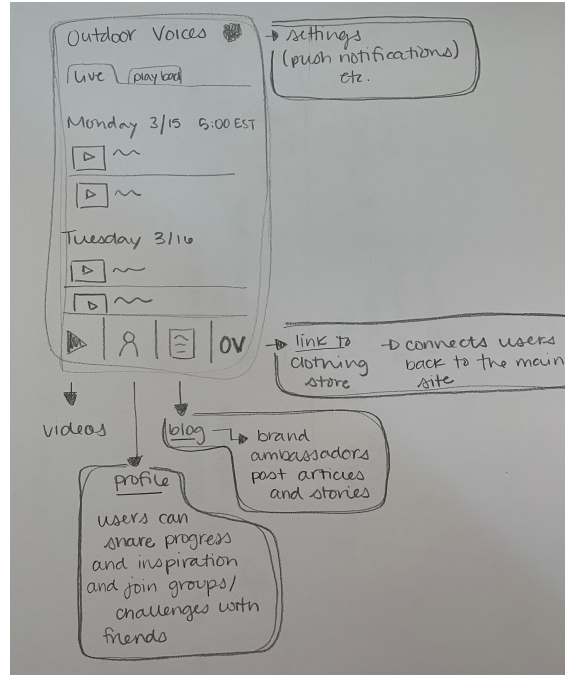 Outdoor Voices
settings
(push notifications)
etc.
Live
playback
Monday 3/15 5:00 EST
Tuesday 3/16
OV
link to
clothing
store
connects users
back to the main
site
videos
blog
brand
ambassadors
post articles
and stories
profile
users can
share progress
and inspiration
and join groups/
challenges with
friends